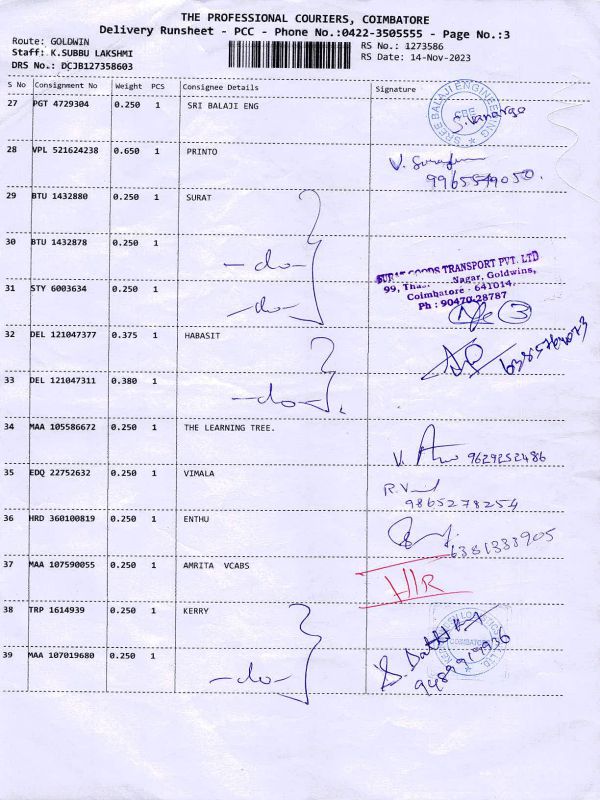 THE PROFESSIONAL COURIERS, COIMBATORE
Delivery Runsheet - PCC - Phone No.:0422-3505555 - Page No.:3
Route: GOLDWIN
RS No.: 1273586
Staff: K.SUBBU LAKSHMI
RS Date: 14-Nov-2023
DRS No.: DCJB127358603
S No Consignment No Weight PCS Consignee Details Signature
27 PGT 4729304 0.250 1 SRI BALAJI ENG
SREE BALAJI ENGINEERING
28 VPL 521624238 0.650 1 PRINTO
9965549050.
29 BTU 1432880 0.250 1 SURAT
30 BTU 1432878 0.250 1 -do-
GOODS TRANSPORT PVT. LTD
99, Nagar, Goldwins,
Coimbatore - 641014.
Ph : 90470-28787
31 STY 6003634 0.250 1 -do- 3
32 DEL 121047377 0.375 1 HABASIT
33 DEL 121047311 0.380 1 -do-
34 MAA 105586672 0.250 1 THE LEARNING TREE.
9629252486
35 EDQ 22752632 0.250 1 VIMALA
9865278254
36 HRD 360100819 0.250 1 ENTHU
6381333905
37 MAA 107590055 0.250 1 AMRITA VCABS
HIR
38 TRP 1614939 0.250 1 KERRY
COIMBATORE
39 MAA 107019680 0.250 1 -do-